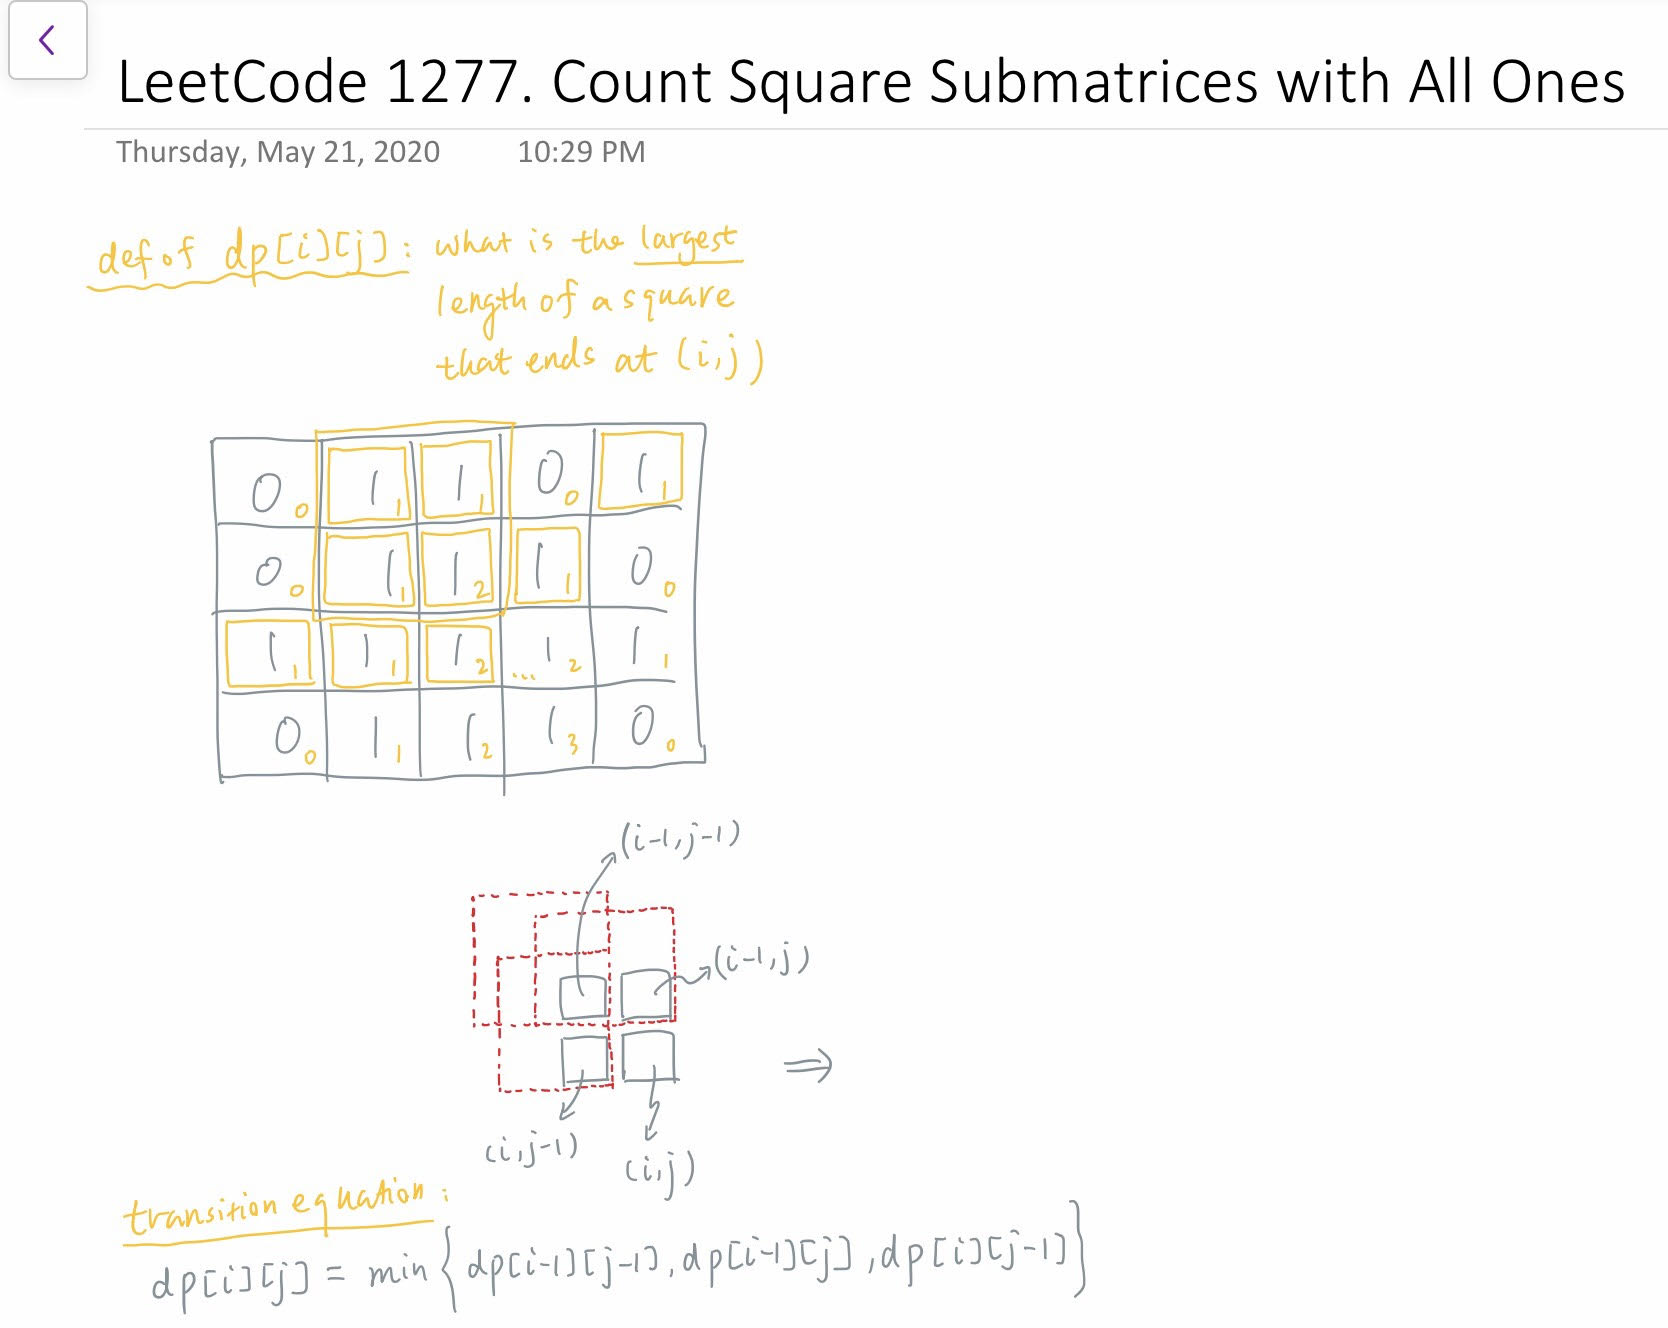 LeetCode 1277. Count Square Submatrices with All Ones
Thursday, May 21, 2020 10:29 PM
def of dp[i][j]: what is the largest
length of a square
that ends at (i,j)
0 0 1 1 1 1 0 0 1 1
0 0 1 1 1 2 1 1 0 0
1 1 1 1 1 2 ... 1 2 1 1
0 0 1 1 1 2 1 3 0 0
(i-1,j-1)
(i-1,j)
⇒
(i,j-1)
(i,j)
transition equation:
dp[i][j] = min{dp[i-1][j-1], dp[i-1][j], dp[i][j-1]}